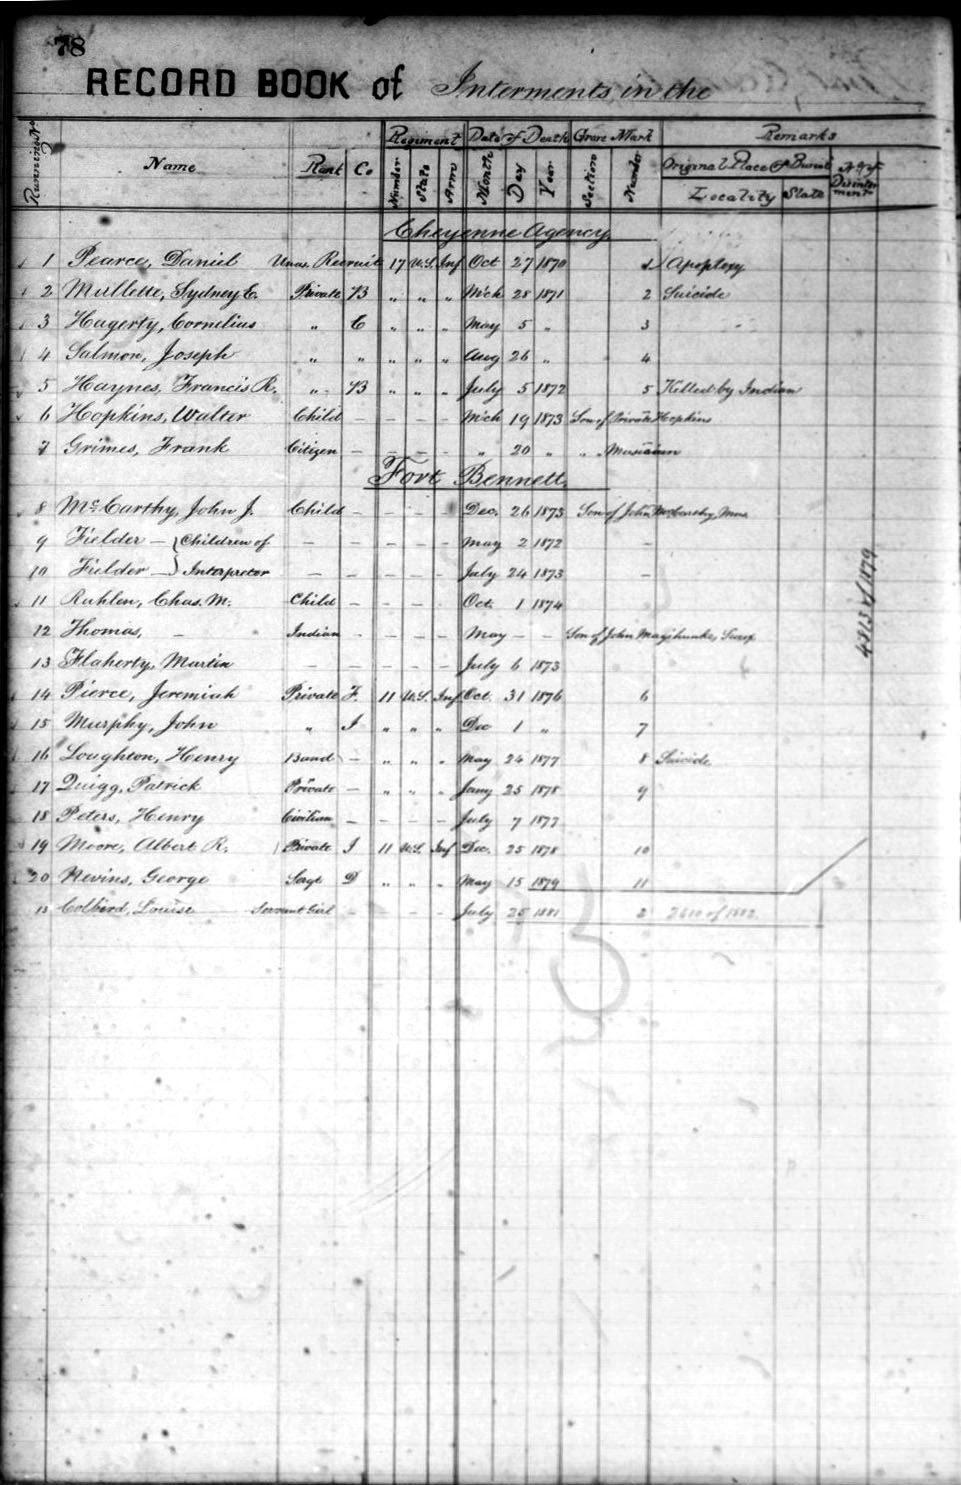 78
RECORD BOOK of Interments in the
Regiment Date of Death Grave Mark Remarks
Running No Name Rank Co Number State Arm Month Day Year Section Number Original Place of Burial
Locality State Disinterment
Cheyenne Agency
1 Pearce, Daniel Unas. Recruit 17 U.S. Inf Oct 27 1870 1 Apoplexy
2 Mullette, Sydney E. Private B " " " M'ch 28 1871 2 Suicide
3 Hagerty, Cornelius " C " " " May 5 " 3
4 Salmon, Joseph " " " " " Aug 26 " 4
5 Haynes, Francis R. " B " " " July 5 1872 5 Killed by Indian
6 Hopkins, Walter Child – – – – M'ch 19 1873 Son of Private Hopkins
7 Grimes, Frank Citizen – – – – " 20 " " Musician
Fort Bennett.
8 McCarthy, John J. Child – – – – Dec. 26 1873 Son of John McCarthy
9 Fielder – } Children of – – – – – May 2 1872 –
10 Fielder – } Interpreter – – – – – July 24 1873 –
11 Ruhlen, Chas. M. Child – – – – Oct. 1 1874
12 Thomas, – Indian – – – – May – – Son of John
13 Flaherty, Martin – – – – – July 6 1873
14 Pierce, Jeremiah Private F. 11 U.S. Inf Oct. 31 1876 6
15 Murphy, John " I " " " Dec 1 " 7
16 Loughton, Henry Band – " " " May 24 1877 8 Suicide
17 Quigg, Patrick Private – " " " Jany 25 1878 9
18 Peters, Henry Civilian – – – – July 7 1877
19 Moore, Albert R. Private I 11 U.S. Inf Dec. 25 1878 10
20 Nevins, George Sergt D " " " May 15 1879 11
Colberd, Louise Servant Girl – – – – July 25 1881 2 2610 of 1882
4313 of 1879